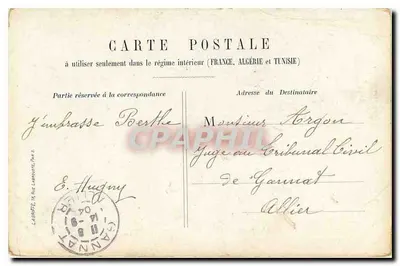 CARTE POSTALE
à utiliser seulement dans le régime intérieur (FRANCE, ALGÉRIE et TUNISIE)
Partie réservée à la correspondance
Adresse du Destinataire
J'embrasse Berthe
E. Hugny
Monsieur Argon
Juge au Tribunal Civil
de Gannat
Allier
GANNAT